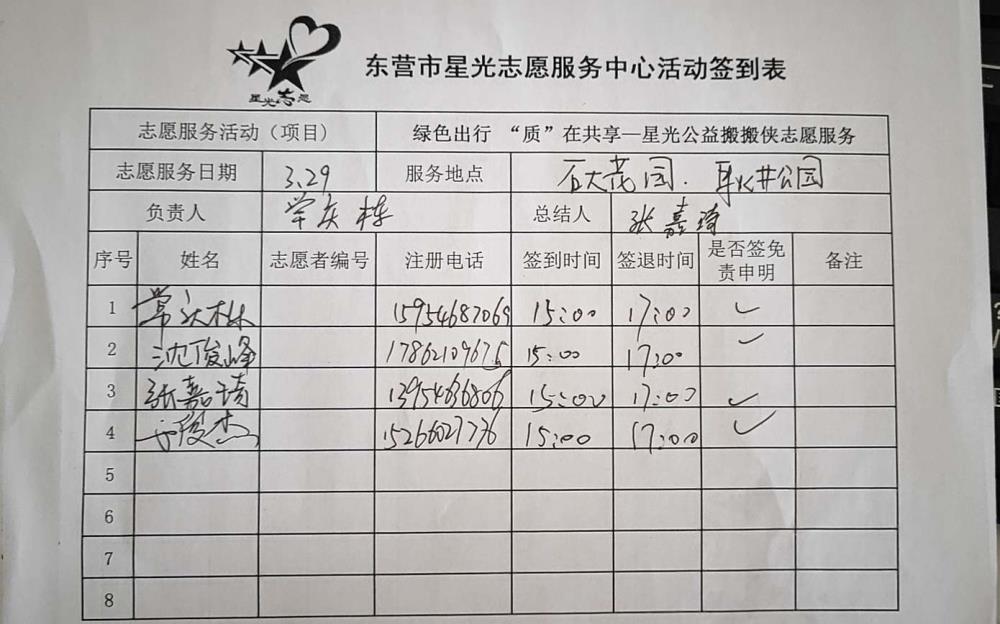 星光志愿
东营市星光志愿服务中心活动签到表
志愿服务活动（项目） 绿色出行 “质”在共享—星光公益搬搬侠志愿服务
志愿服务日期 3.29 服务地点 石大花园. 耿井公园
负责人 常庆栋 总结人 张嘉琦
序号 姓名 志愿者编号 注册电话 签到时间 签退时间 是否签免责申明 备注
1 15954687069 15:00 17:00 ✓
2 沈俊峰 17862109675 15:00 17:00 ✓
3 张嘉琦 13954636806 15:00 17:00 ✓
4 15266027736 15:00 17:00 ✓
5
6
7
8